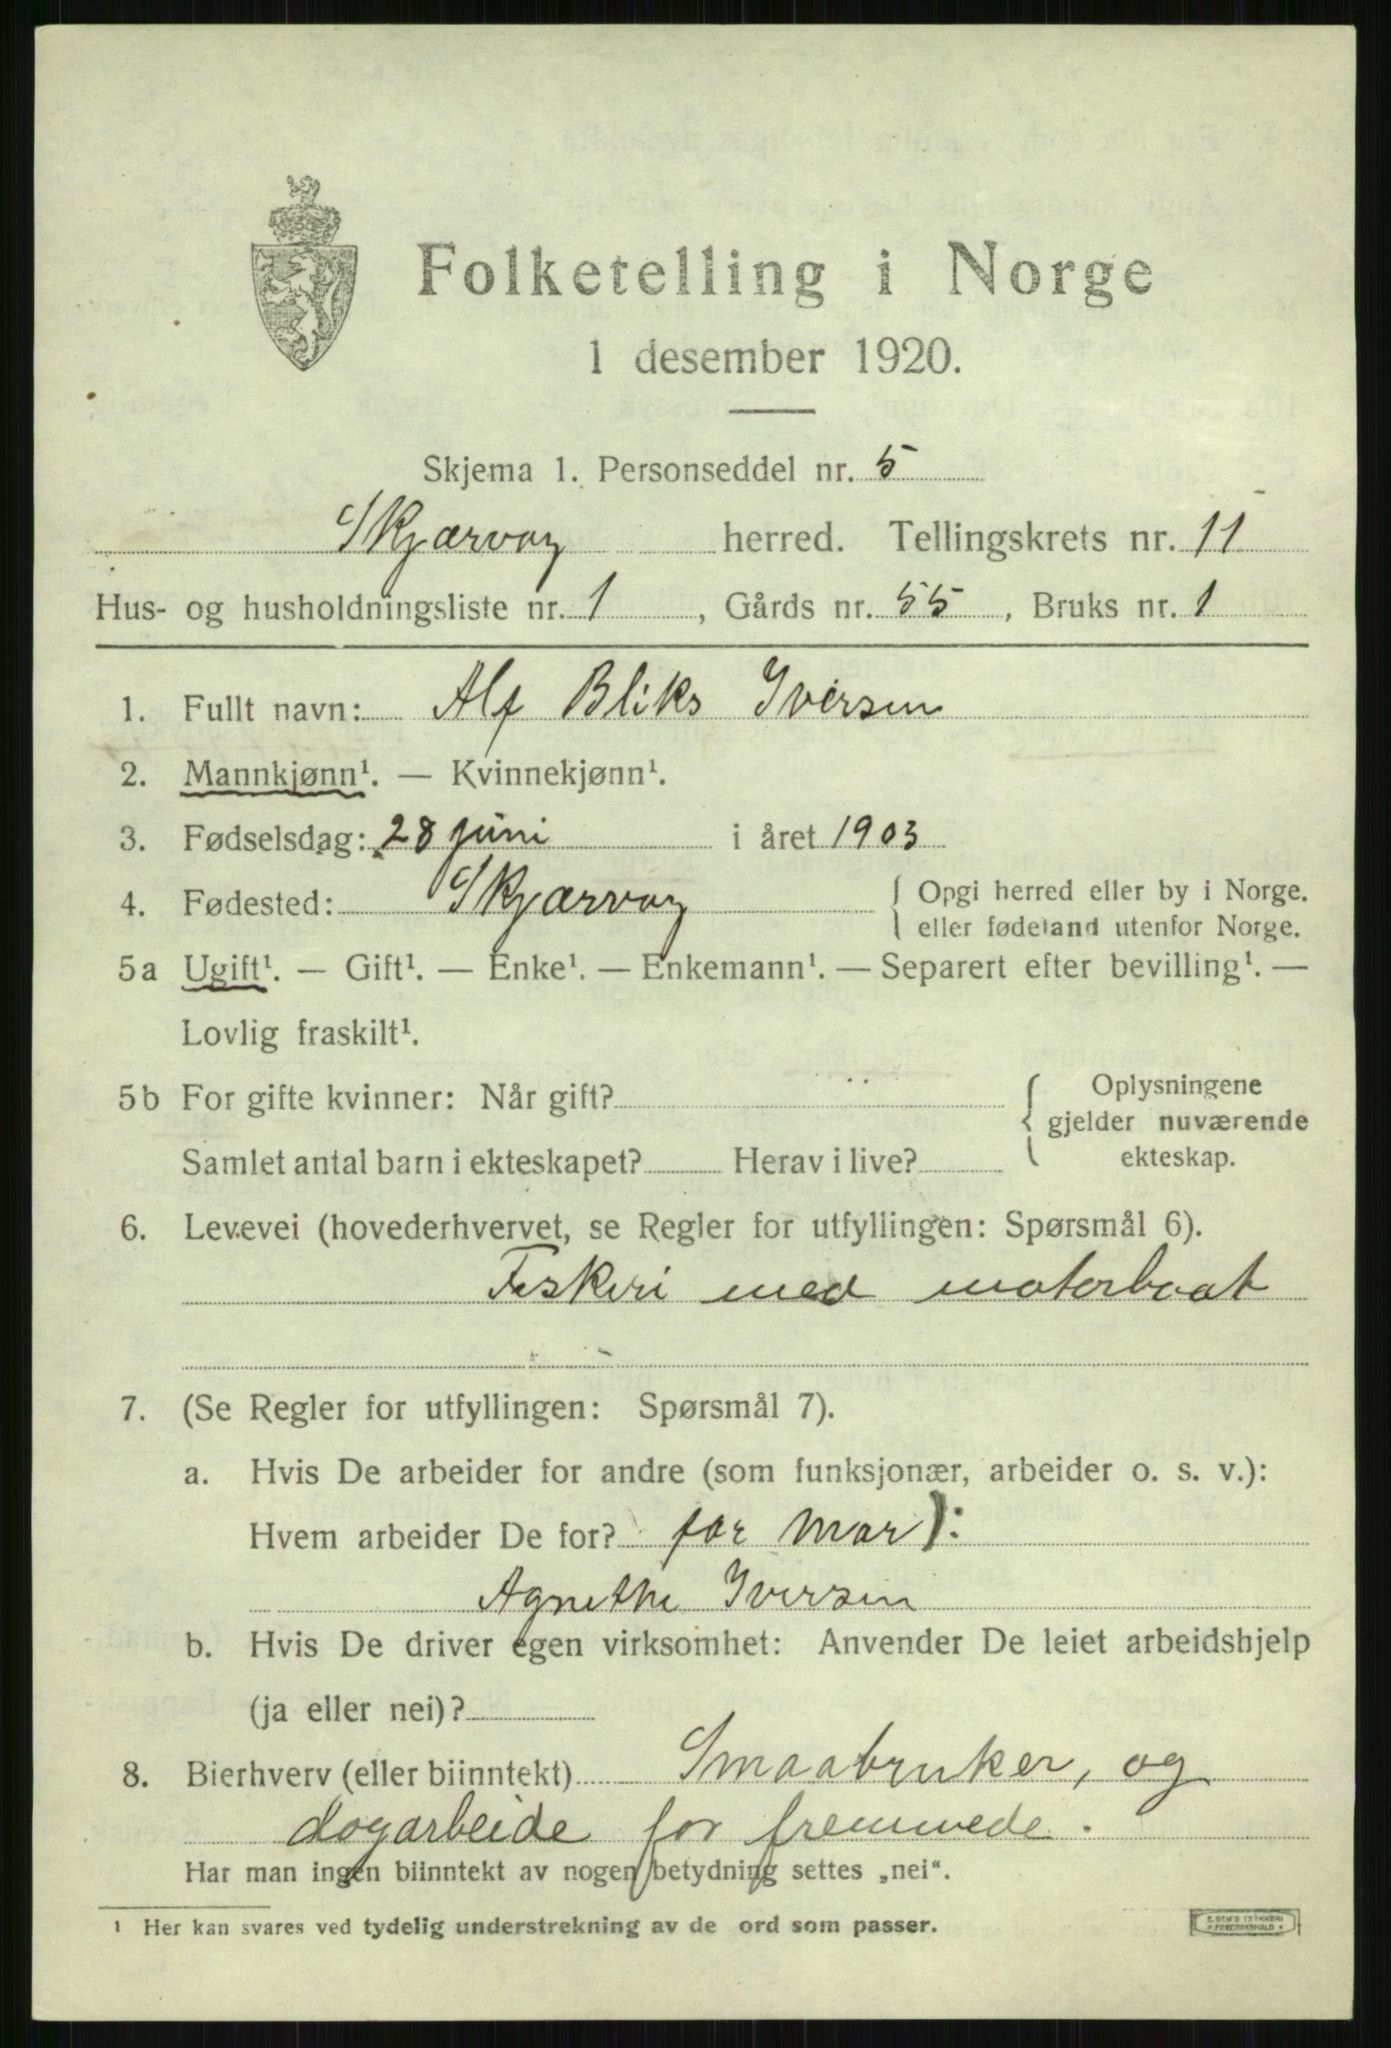 Folketelling i Norge
1 desember 1920.
Skjema 1. Personseddel nr. 5
Skjærvøy herred. Tellingskrets nr. 11
Hus- og husholdningsliste nr. 1, Gårds nr. 55, Bruks nr. 1
1. Fullt navn: Alf Bliks Iversen
2. Mannkjønn¹. — Kvinnekjønn¹.
3. Fødselsdag: 28 juni i året 1903
4. Fødested: Skjærvøy { Opgi herred eller by i Norge.
eller fødeland utenfor Norge.
5a Ugift¹. — Gift¹. — Enke¹. — Enkemann¹. — Separert efter bevilling¹. —
Lovlig fraskilt¹.
5b For gifte kvinner: Når gift? { Oplysningene
gjelder nuværende
Samlet antal barn i ekteskapet? Herav i live? ekteskap.
6. Levevei (hovederhvervet, se Regler for utfyllingen: Spørsmål 6).
Fiskeri med motorbaat
7. (Se Regler for utfyllingen: Spørsmål 7).
a. Hvis De arbeider for andre (som funksjonær, arbeider o. s. v.):
Hvem arbeider De for? for mor):
Agnethe Iversen
b. Hvis De driver egen virksomhet: Anvender De leiet arbeidshjelp
(ja eller nei)?
8. Bierhverv (eller biinntekt) Smaabruker, og
dagarbeide for fremmede.
Har man ingen biinntekt av nogen betydning settes „nei“.
¹ Her kan svares ved tydelig understrekning av de ord som passer.